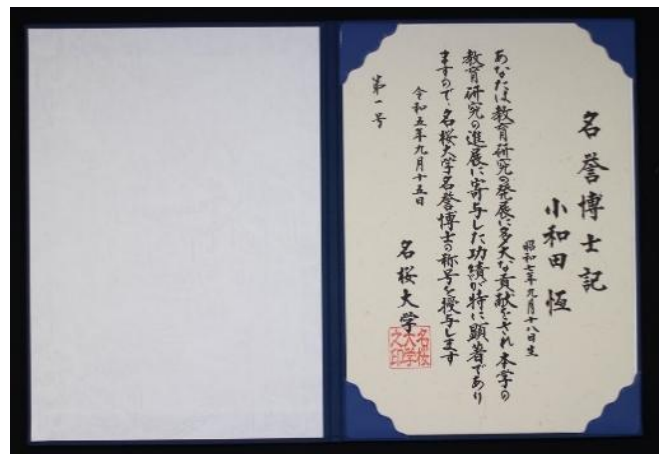 名誉博士記
小和田恆
昭和七年九月十八日生
あなたは教育研究の発展に多大な貢献をされ本学の
教育研究の進展に寄与した功績が特に顕著であり
ますので、名桜大学名誉博士の称号を授与します
令和五年九月十五日
第一号
名桜大学
名桜
大学
之印